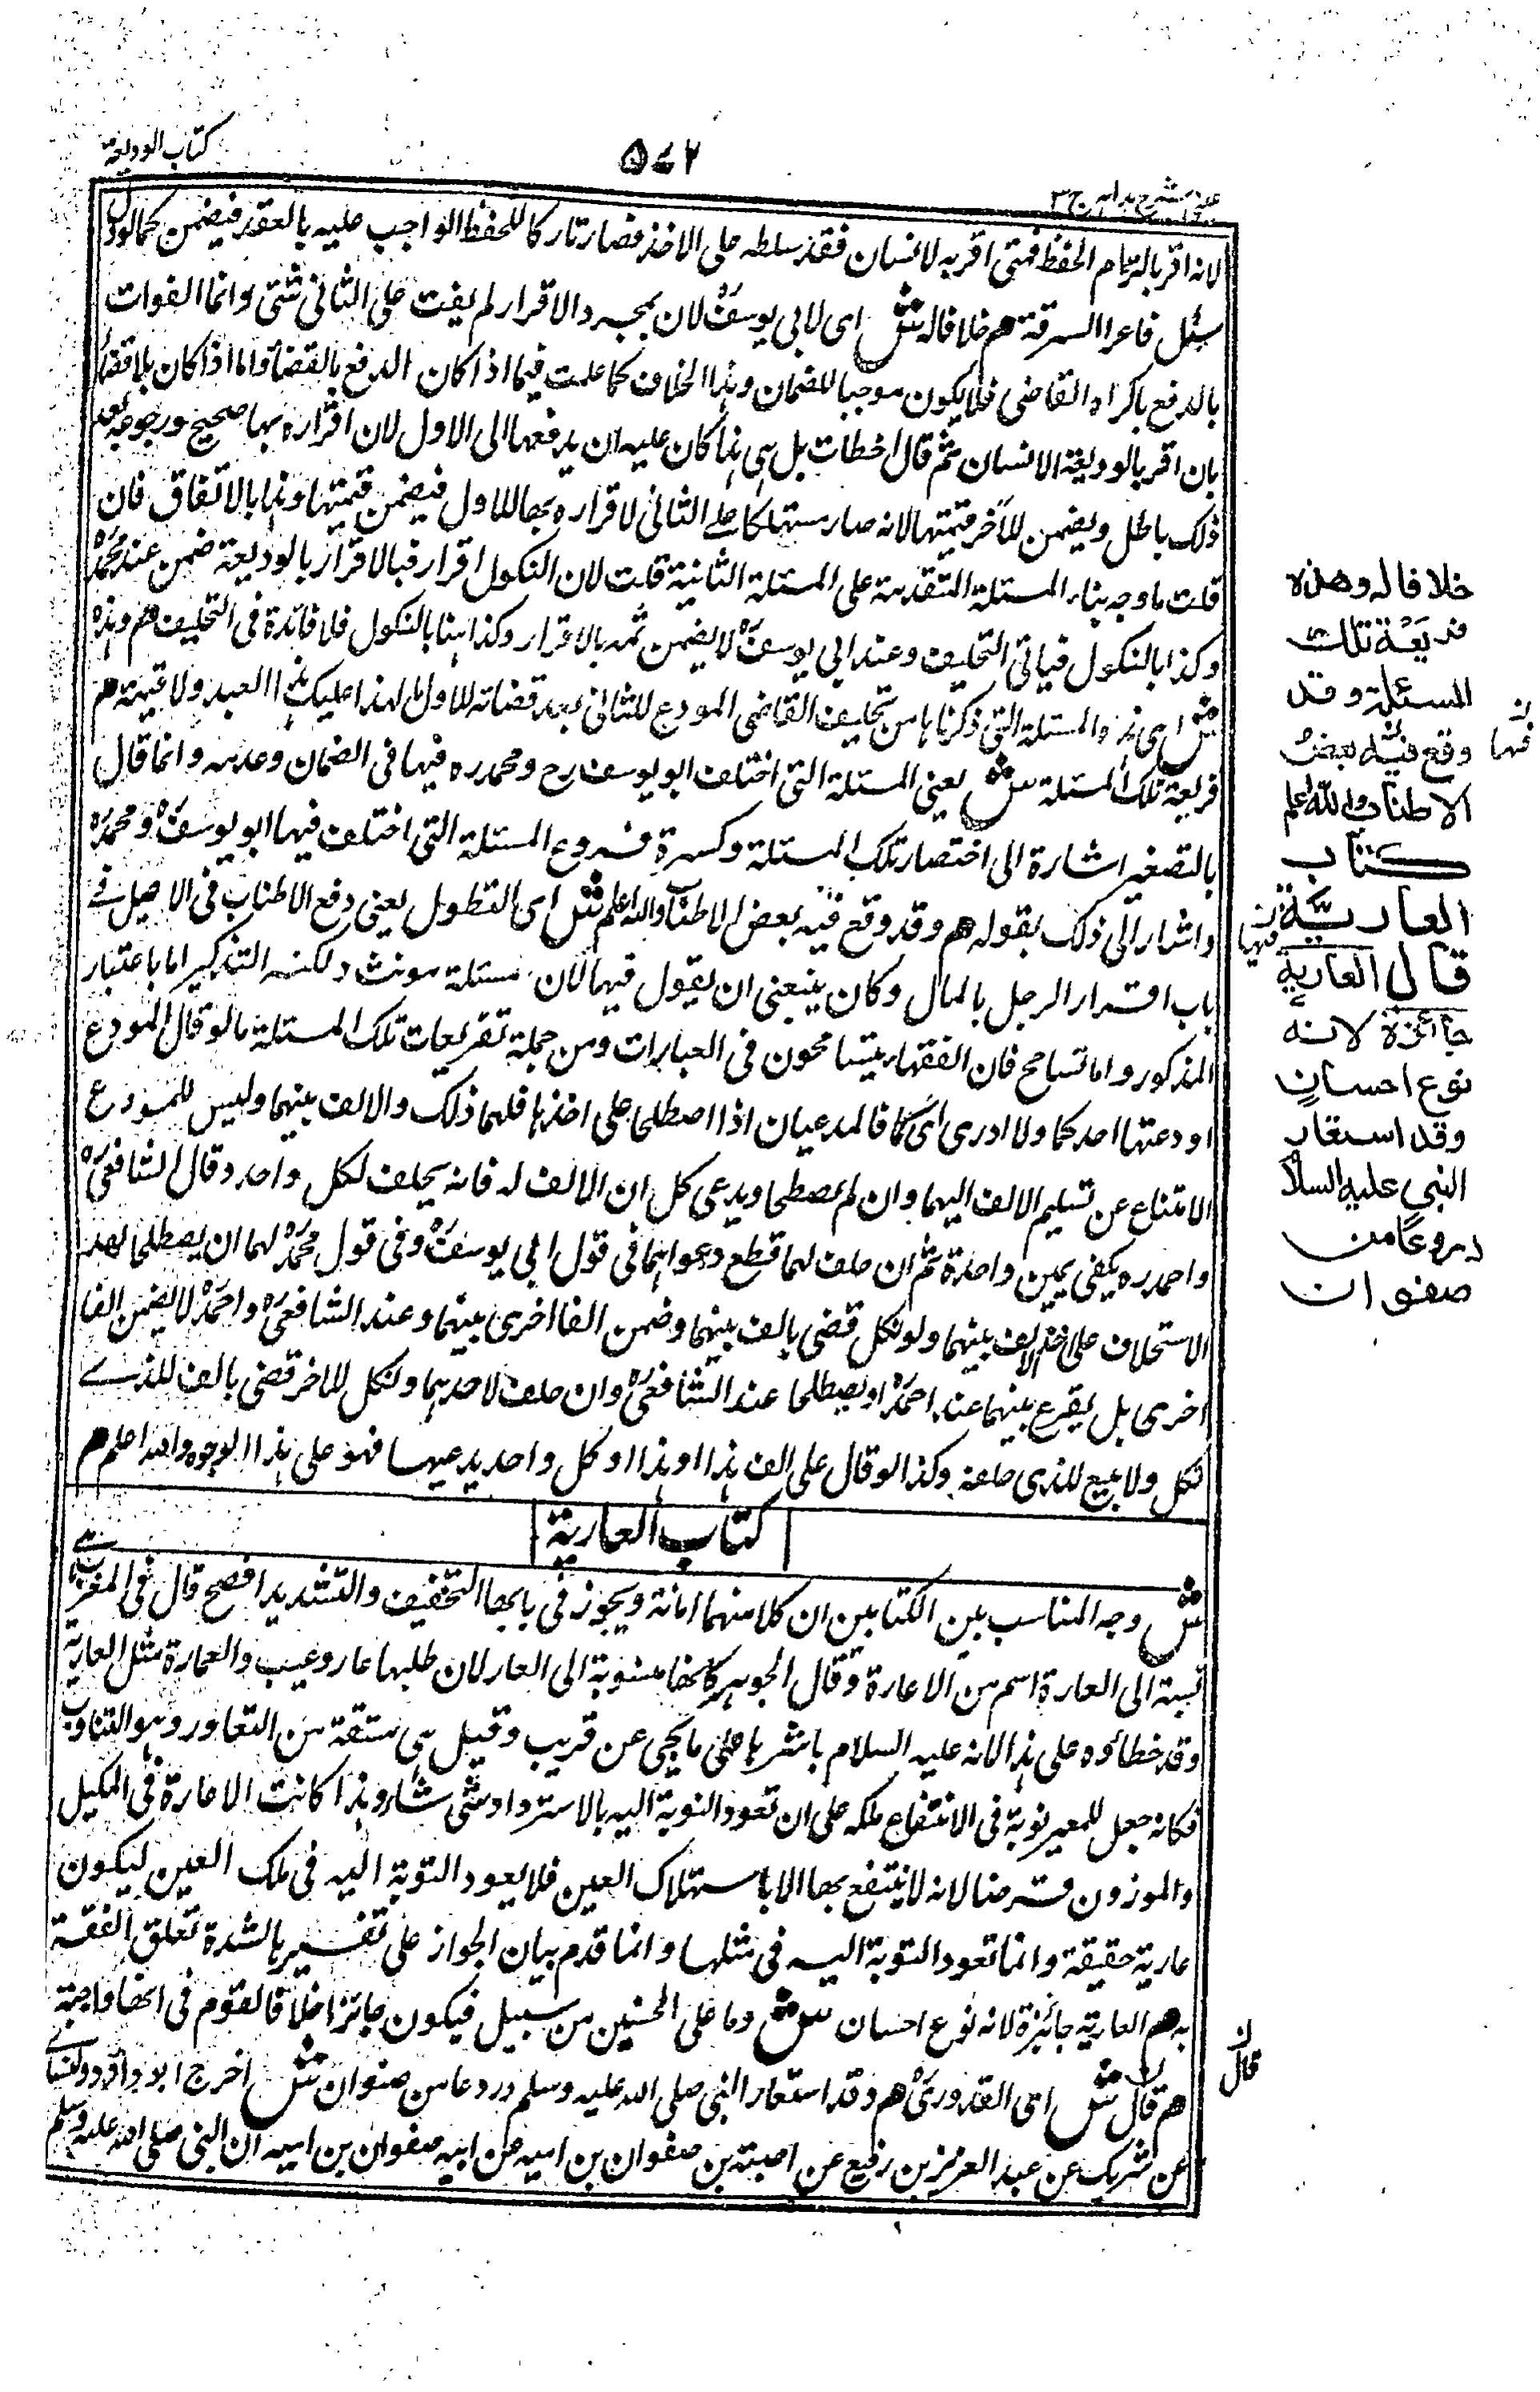 كتاب الوديعة
٥٧٢
عينى شرح هدايه ج ٣
لانه اقر بالتزام الحفظ فمتى اقر به لانسان فقد سلطه على الاخذ فصار تاركا للحفظ الواجب عليه بالعقد فيضمن كالمودع
سئل فاعزا السرقة هم خلافا له ش اى لابى يوسفؒ لان بمجرد الاقرار لم يفت على الثانى شئ وانما الفوات
بالدفع باكراه القاضى فلا يكون موجبا للضمان وهذا الخلاف كما علمت فيما اذا كان الدفع بالقضاء واما اذا كان بلا قضاء
بان اقر بالوديعة لانسان ثم قال اخطات بل هى لهذا كان عليه ان يدفعها الى الاول لان اقراره بها صحيح ورجوعه بعد
ذلك باطل ويضمن للآخر قيمتها لانه صار مستهلكا على الثانى لاقراره بها للاول فيضمن قيمتها وهذا بالاتفاق فان
قلت ما وجه بناء المسئلة المتقدمة على المسئلة الثانية قلت لان النكول اقرار فبالاقرار بالوديعة ضمن عند محمدؒ
وكذا بالنكول فياتى التحليف وعند ابى يوسفؒ لا يضمن ثمه بالاقرار وكذا هنا بالنكول فلا فائدة فى التحليف هم وهذه
ش اى هذه المسئلة التى ذكرناها من تحليف القاضى المودع للثانى بعد قضائه للاول ما لهذا عليك هذا العبد ولا قيمته هم
فريعة تلك المسئلة ش يعنى المسئلة التى اختلف ابو يوسف رح ومحمد ره فيها فى الضمان وعدمه وانما قال
بالتصغير اشارة الى اختصار تلك المسئلة وكسرة فروع المسئلة التى اختلف فيها ابو يوسفؒ ومحمدؒ
واشار الى ذلك بقوله هم وقد وقع فيه بعض الاطناب والله اعلم ش اى التطول يعنى دفع الاطناب فى الاصيل فى
باب اقرار الرجل بالمال وكان ينبغى ان يقول فيها لان مسئلة مونث ولكنه التذكير اما باعتبار
المذكور واما تسامح فان الفقهاء يتسامحون فى العبارات ومن جملة تفريعات تلك المسئلة ما لو قال المودع
اودعتها احدكما ولا ادرى ايكما فالمدعيان اذا اصطلحا على اخذها فلهما ذلك والالف بينهما وليس للمودع
الامتناع عن تسليم الالف اليهما وان لم يصطلحا ويدعى كل ان الالف له فانه يحلف لكل واحد وقال الشافعىؒ
واحمد ره يكفى يمين واحدة ثم ان حلف لهما قطع دعواهما فى قول ابى يوسفؒ وفى قول محمدؒ لهما ان يصطلحا بعد
الاستحلاف على اخذ الالف بينهما ولو نكل قضى بالف بينهما وضمن الفا اخرى بينهما وعند الشافعىؒ واحمدؒ لا يضمن الفا
اخرى بل يقرع بينهما عند احمدؒ او يصطلحا عند الشافعىؒ وان حلف لاحدهما ونكل للاخر قضى بالف للذى
نكل ولا يبيع للذى حلفه وكذا لو قال على الف لهذا او لهذا او كل واحد يدعيها فهو على هذا الوجوه والله اعلم هم
كتاب العارية
ش وجه المناسب بين الكتابين ان كلا منهما امانة ويجوز فى يائها التخفيف والتشديد افصح قال فى المغرب هى
نسبة الى العارة اسم من الاعارة وقال الجوهرى كانها منسوبة الى العار لان طلبها عار وعيب والعارة مثل العارية
وقد خطاؤه على هذا لانه عليه السلام باشرها على ما يجئ عن قريب وقيل هى مشتقة من التعاور وهو التناوب
فكانه جعل للمعير نوبة فى الانتفاع ملكه على ان تعود النوبة اليه بالاسترداد متى شاء ولهذا كانت الاعارة فى المكيل
والموزون قرضا لانه لا ينتفع بها الا باستهلاك العين فلا يعود النوبة اليه فى ملك العين ليكون
عارية حقيقة وانما تعود النوبة اليه فى مثلها وانما قدم بيان الجواز على تفسيرها لشدة تعلق الفقه
به هم العارية جائزة لانه نوع احسان ش وما على المحسنين من سبيل فيكون جائزا خلافا لقوم فى انها واجبة
هم قال ش اى القدورىؒ هم وقد استعار النبى صلى الله عليه وسلم دروعا من صفوان ش اخرج ابو داؤد والنسائى
عن شريك عن عبد العزيز بن رفيع عن امية بن صفوان بن اميه عن ابيه صفوان بن اميه ان النبى صلى الله عليه وسلم
خلافا له وهذه
فريعة تلك
المسئلة وقد
وقع فيه بعض
الاطناب والله اعلم
كتاب
العارية
قال العارية
جائزة لانه
نوع احسان
وقد استعار
النبى عليه السلام
دروعا من
صفوان
ن
فيها
ن
فيها
ن
قال